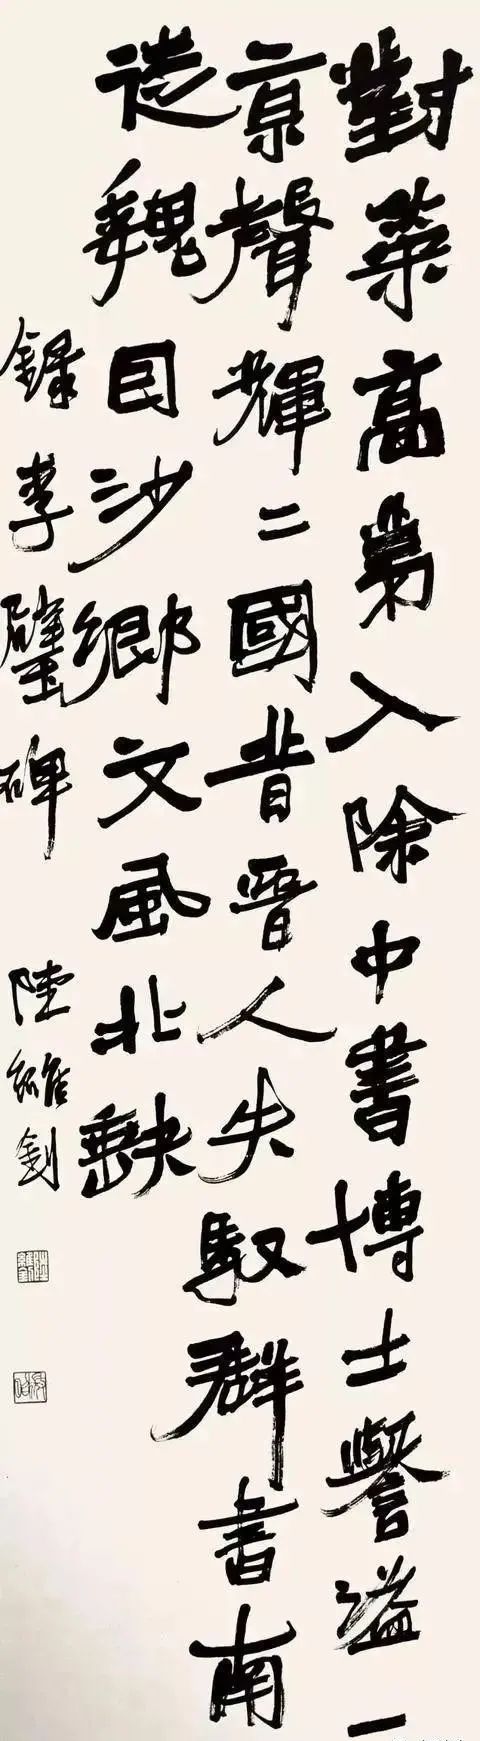 對策高第入除中書博士譽溢一
京聲輝二國昔晉人失馭群書南
徙魏因沙鄉文風北缺
錄李璧碑 陸維釗